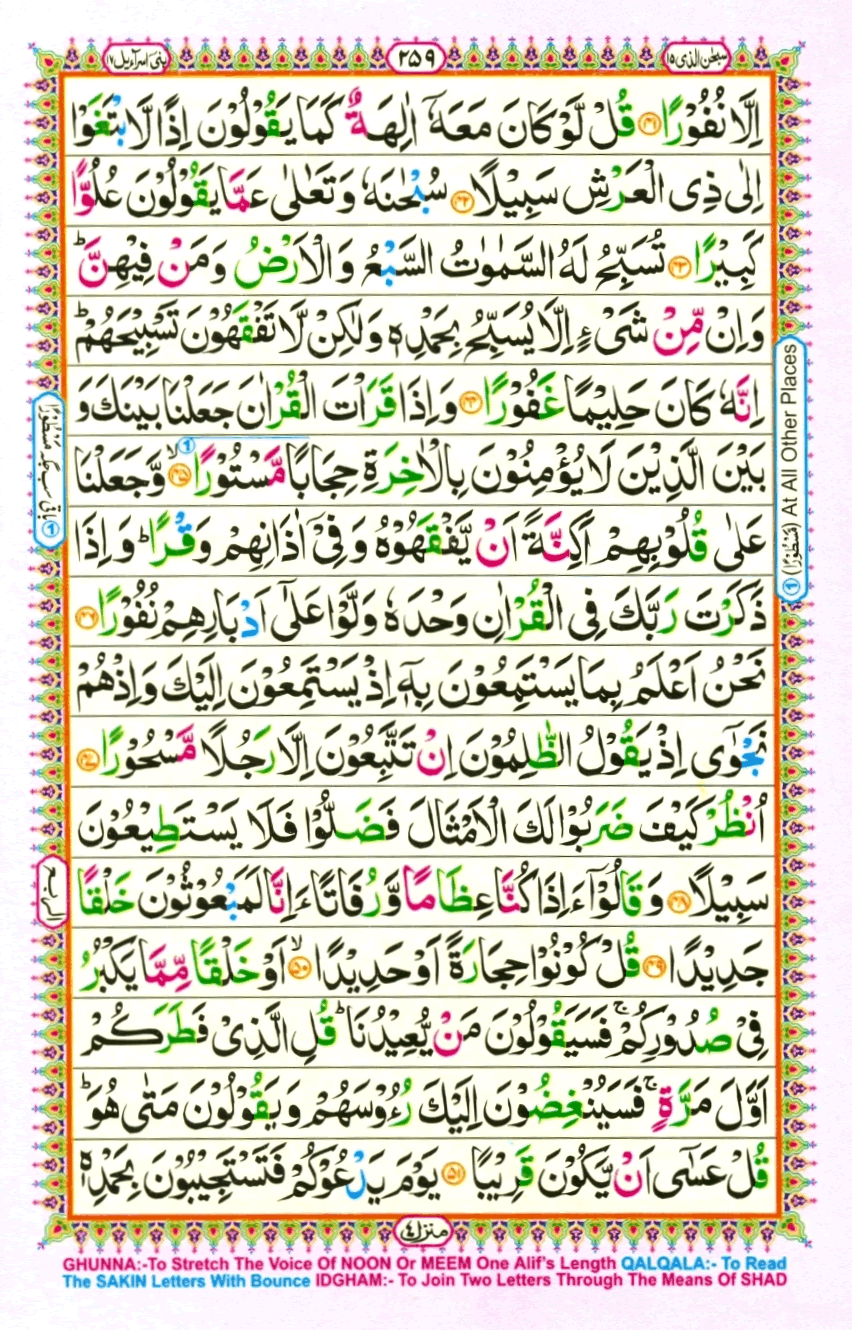 سبحٰن الذی ۱۵
۲۵۹
بنی اسرآءیل ۱۷
اِلَّا نُفُوْرًا ۝۴۱ قُلْ لَّوْ كَانَ مَعَهٗۤ اٰلِهَةٌ كَمَا یَقُوْلُوْنَ اِذًا لَّا بْتَغَوْا
اِلٰى ذِی الْعَرْشِ سَبِیْلًا ۝۴۲ سُبْحٰنَهٗ وَ تَعٰلٰى عَمَّا یَقُوْلُوْنَ عُلُوًّا
كَبِیْرًا ۝۴۳ تُسَبِّحُ لَهُ السَّمٰوٰتُ السَّبْعُ وَ الْاَرْضُ وَ مَنْ فِیْهِنَّ ؕ
وَ اِنْ مِّنْ شَیْءٍ اِلَّا یُسَبِّحُ بِحَمْدِهٖ وَ لٰكِنْ لَّا تَفْقَهُوْنَ تَسْبِیْحَهُمْ ؕ
اِنَّهٗ كَانَ حَلِیْمًا غَفُوْرًا ۝۴۴ وَ اِذَا قَرَاْتَ الْقُرْاٰنَ جَعَلْنَا بَیْنَكَ وَ
بَیْنَ الَّذِیْنَ لَا یُؤْمِنُوْنَ بِالْاٰخِرَةِ حِجَابًا مَّسْتُوْرًا ۝۴۵ ۙ وَّ جَعَلْنَا
عَلٰى قُلُوْبِهِمْ اَكِنَّةً اَنْ یَّفْقَهُوْهُ وَ فِیْۤ اٰذَانِهِمْ وَقْرًا ؕ وَ اِذَا
ذَكَرْتَ رَبَّكَ فِی الْقُرْاٰنِ وَحْدَهٗ وَلَّوْا عَلٰۤى اَدْبَارِهِمْ نُفُوْرًا ۝۴۶
نَحْنُ اَعْلَمُ بِمَا یَسْتَمِعُوْنَ بِهٖۤ اِذْ یَسْتَمِعُوْنَ اِلَیْكَ وَ اِذْ هُمْ
نَجْوٰۤى اِذْ یَقُوْلُ الظّٰلِمُوْنَ اِنْ تَتَّبِعُوْنَ اِلَّا رَجُلًا مَّسْحُوْرًا ۝۴۷
اُنْظُرْ كَیْفَ ضَرَبُوْا لَكَ الْاَمْثَالَ فَضَلُّوْا فَلَا یَسْتَطِیْعُوْنَ
سَبِیْلًا ۝۴۸ وَ قَالُوْۤا ءَاِذَا كُنَّا عِظَامًا وَّ رُفَاتًا ءَاِنَّا لَمَبْعُوْثُوْنَ خَلْقًا
جَدِیْدًا ۝۴۹ قُلْ كُوْنُوْا حِجَارَةً اَوْ حَدِیْدًا ۝۵۰ ۙ اَوْ خَلْقًا مِّمَّا یَكْبُرُ
فِیْ صُدُوْرِكُمْ ۚ فَسَیَقُوْلُوْنَ مَنْ یُّعِیْدُنَا ؕ قُلِ الَّذِیْ فَطَرَكُمْ
اَوَّلَ مَرَّةٍ ۚ فَسَیُنْغِضُوْنَ اِلَیْكَ رُءُوْسَهُمْ وَ یَقُوْلُوْنَ مَتٰى هُوَ ؕ
قُلْ عَسٰۤى اَنْ یَّكُوْنَ قَرِیْبًا ۝۵۱ یَوْمَ یَدْعُوْكُمْ فَتَسْتَجِیْبُوْنَ بِحَمْدِهٖ
① At All Other Places (مَّسْطُوْرًا)
① باقی سب جگہ مَسْطُوْرًا
الربع
منزل ٤
GHUNNA:-To Stretch The Voice Of NOON Or MEEM One Alif's Length QALQALA:- To Read
The SAKIN Letters With Bounce IDGHAM:- To Join Two Letters Through The Means Of SHAD